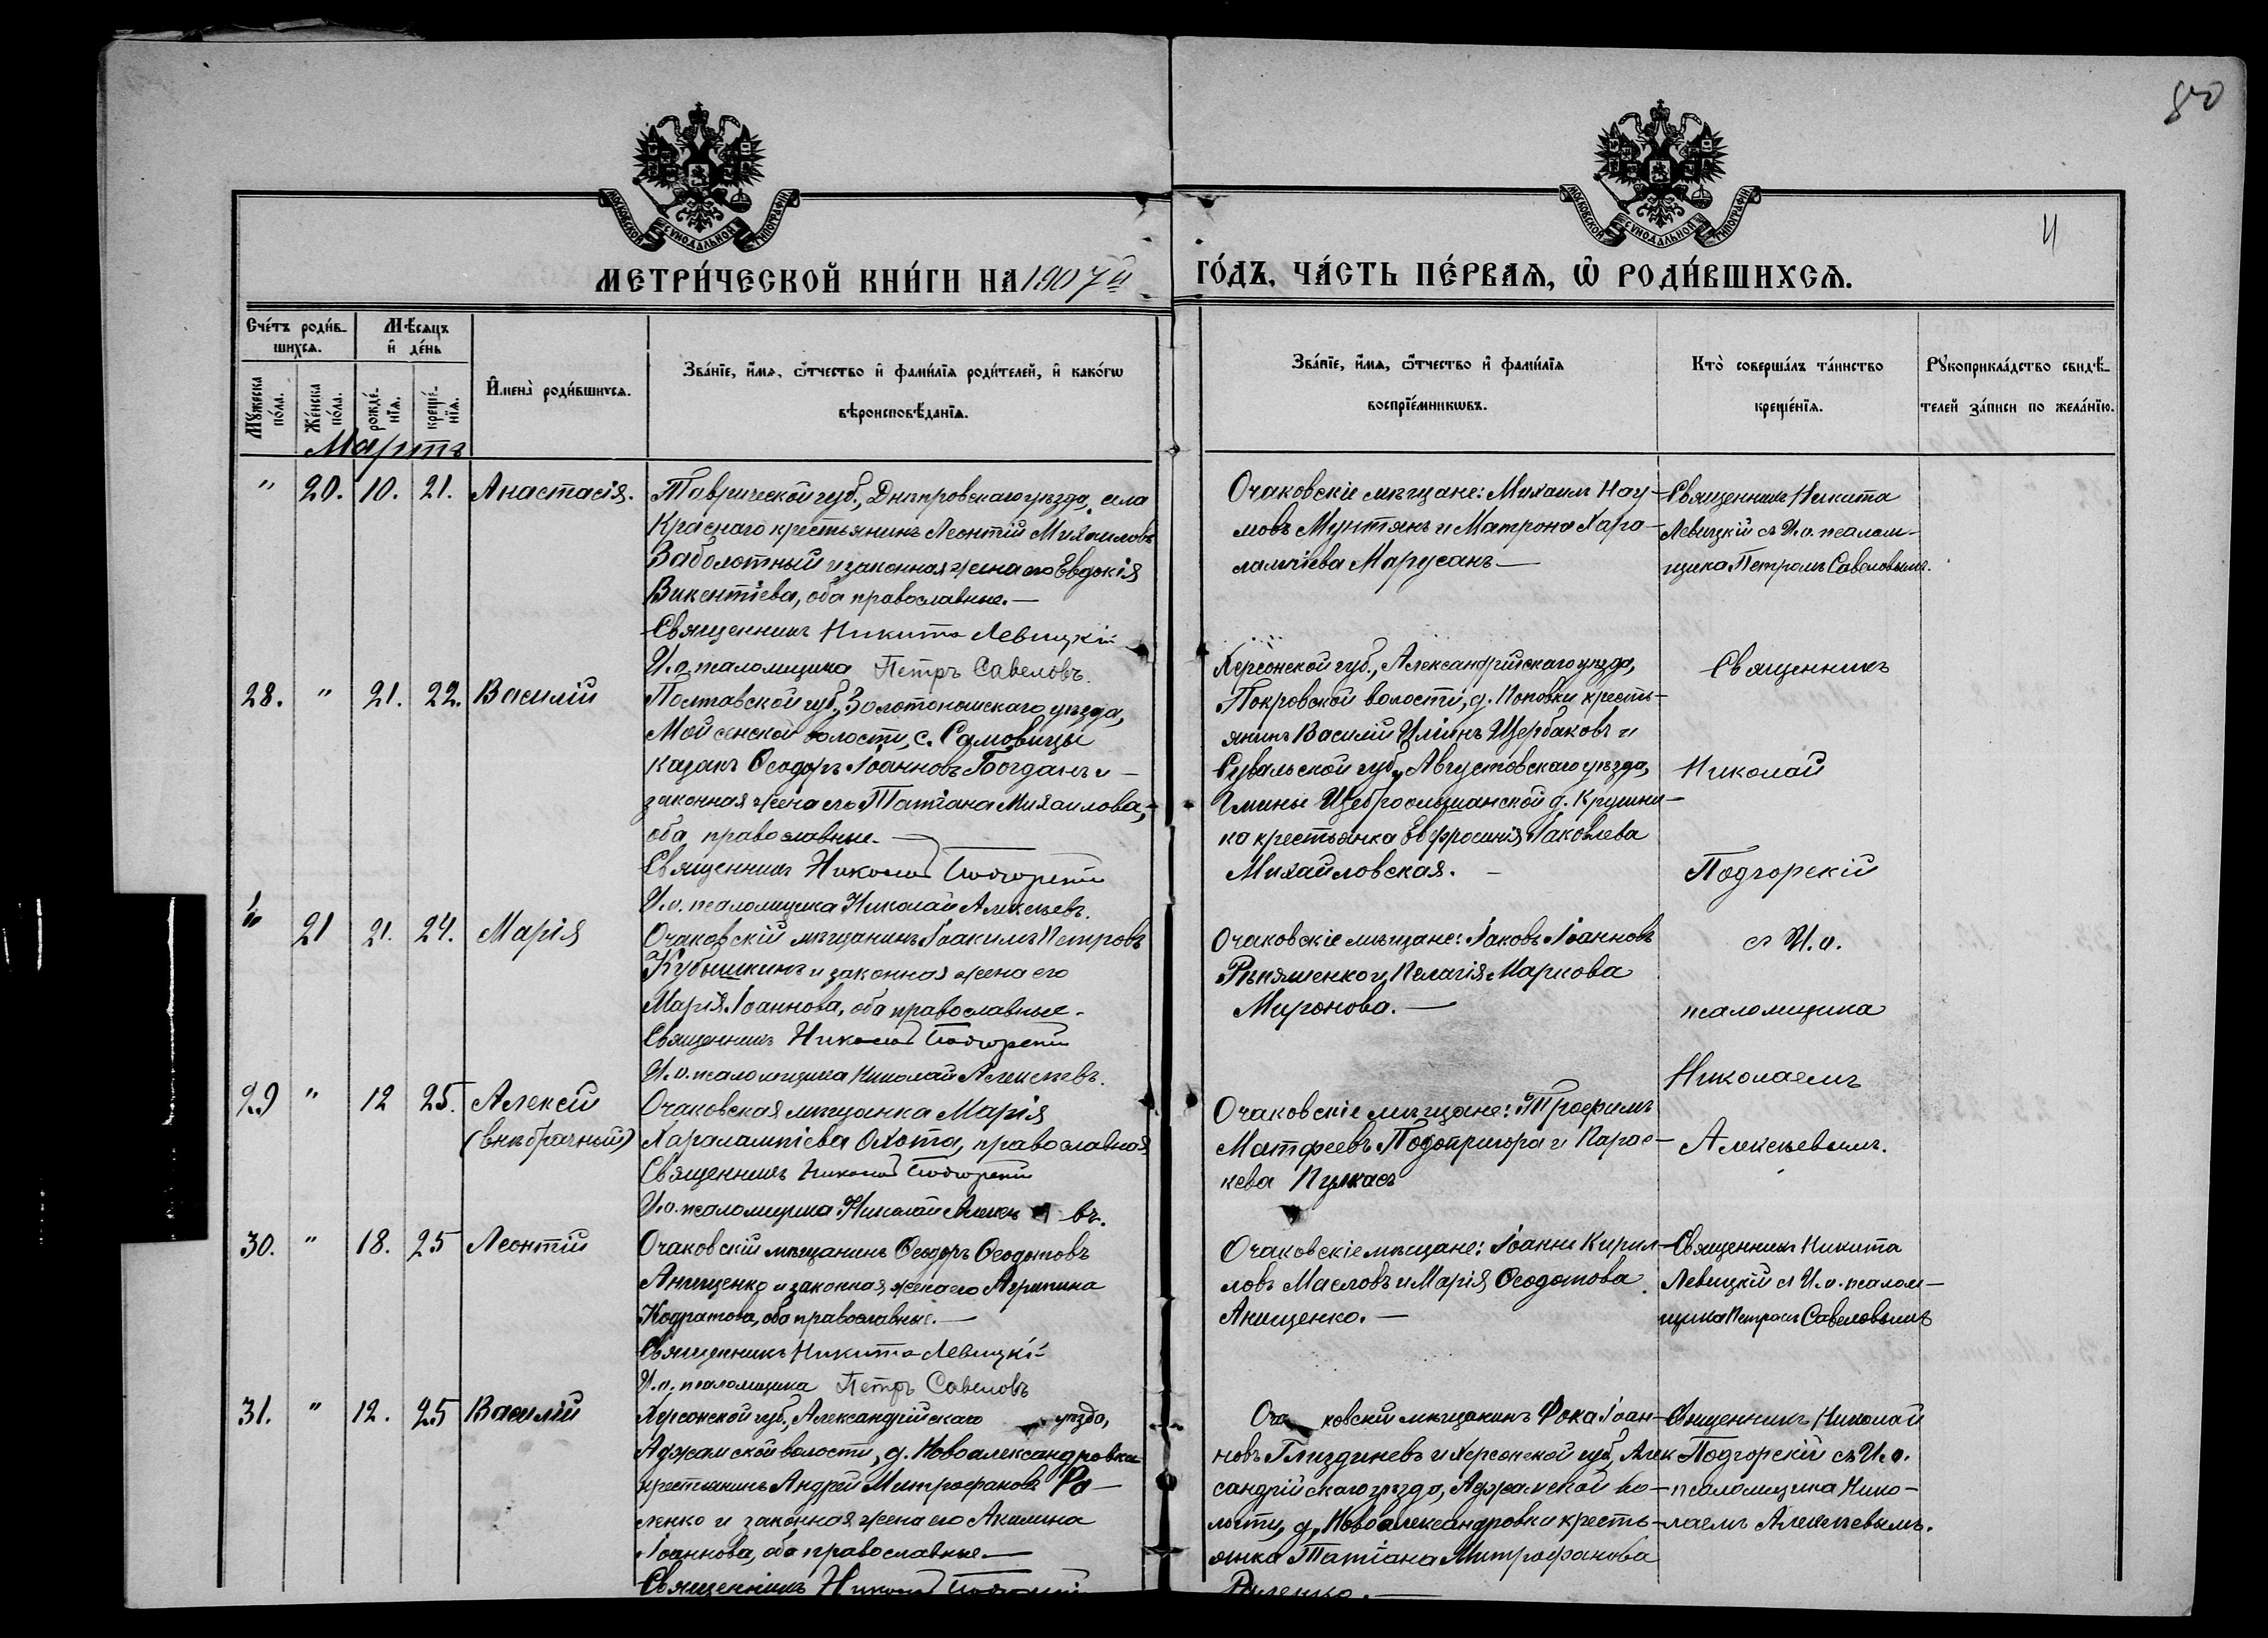 80
МОСКОВСКОЙ СѴНОДАЛЬНОЙ ТИПОГРАФІИ
МОСКОВСКОЙ СѴНОДАЛЬНОЙ ТИПОГРАФІИ
МЕТРИ́ЧЕСКОЙ КНИ́ГИ НА 1907й ГО́ДЪ, ЧА́СТЬ ПЕ́РВАѦ, Ѡ҆ РОДИ́ВШИХСѦ.
Сче́тъ роди́в-
шихсѧ.
Мѣ́сѧцъ
и҆ де́нь
Мꙋ́жеска по́ла.
Же́нска по́ла.
рожде́-
нїѧ.
креще́-
нїѧ.
И҆мена̀ роди́вшихсѧ.
Зва́нїе, и҆́мѧ, ѻ҆́тчество и҆ фами́лїѧ роди́телей, и҆ како́гѡ
вѣроисповѣ́данїѧ.
Зва́нїе, и҆́мѧ, ѻ҆́тчество и҆ фами́лїѧ
воспрїе́мникѡвъ.
Кто̀ соверша́лъ та́инство
креще́нїѧ.
Рꙋкоприкла́дство свидѣ́-
телей за́писи по жела́нїю.
Мартъ
" 20. 10. 21. Анастасія.
Таврической губ., Днѣпровскаго уѣзда, села
Краснаго крестьянинъ Леонтій Михаиловъ
Заболотный и законная жена его Евдокія
Викентіева, оба православные.—
Священникъ Никита Левицкій
И.о. псаломщика Петръ Савеловъ.
Очаковскіе мѣщане: Михаилъ Нау-
мовъ Мунтянъ и Матрона Хара-
лампіева Марусанъ—
Священникъ Никита
Левицкій съ И.о. псалом-
щика Петромъ Савеловымъ.
28. " 21. 22. Василій
Полтавской губ., Золотоношскаго уѣзда,
Мойсенской волости, с. Самовицы
казакъ Ѳеодоръ Іоанновъ Богданъ и
законная жена его Татіана Михаилова,
оба православные.—
Священникъ Николай Подгорскій
И.о. псаломщика Николай Алексѣевъ.
Херсонской губ., Александрійскаго уѣзда,
Покровской волости, д. Поповки кресть-
янинъ Василій Ильинъ Щербаковъ и
Сувальской губ., Августовскаго уѣзда,
Гмины д.
ка крестьянка Евфросинія Іаковлева
Михайловская.—
Священникъ
Николай
Подгорскій
съ И.о.
псаломщика
Николаемъ
Алексѣевымъ.
" 21 21. 24. Марія
Очаковскій мѣщанинъ Іоакимъ Петровъ
Кубышкинъ и законная жена его
Марія Іоаннова, оба православные.
Священникъ Николай Подгорскій
И.о. псаломщика Николай Алексѣевъ.
Очаковскіе мѣщане: Іаковъ Іоанновъ
и Пелагія Маркова
Миронова.—
29 " 12 25. Алексій
(внѣбрачный)
Очаковская мѣщанка Марія
Харалампіева Охота, православная
Священникъ Николай Подгорскій
И.о. псаломщика Николай Алексѣевъ.
Очаковскіе мѣщане: Трофимъ
Матфеевъ Подопригора и Парас-
кева
30. " 18. 25 Леонтій
Очаковскій мѣщанинъ Ѳеодоръ Ѳеодотовъ
Анищенко и законная жена его Агрипина
Кодратова, оба православные.—
Священникъ Никита Левицкій
И.о. псаломщика Петръ Савеловъ
Очаковскіе мѣщане: Іоаннъ Кирил-
ловъ Масловъ и Марія Ѳеодотова
Анищенко.—
Священникъ Никита
Левицкій съ И.о. псалом-
щика Петромъ Савеловымъ
31. " 12. 25 Василій
Херсонской губ., Александрійскаго уѣзда,
Аджамской волости, д. Новоалександровки
крестьянинъ Андрей Митрофановъ Ра-
ленко и законная жена его Акилина
Іоаннова, оба православные.—
Священникъ Николай Подгорскій
Очаковскій мѣщанинъ Фока Іоан-
новъ и Херсонской губ., Алек
сандрійскаго уѣзда, Аджамской во-
лости, д. Новоалександровки кресть-
янка Татіана Митрофанова
Раленко.—
Священникъ Николай
Подгорскій съ И.о.
псаломщика Нико-
лаемъ Алексѣевымъ.